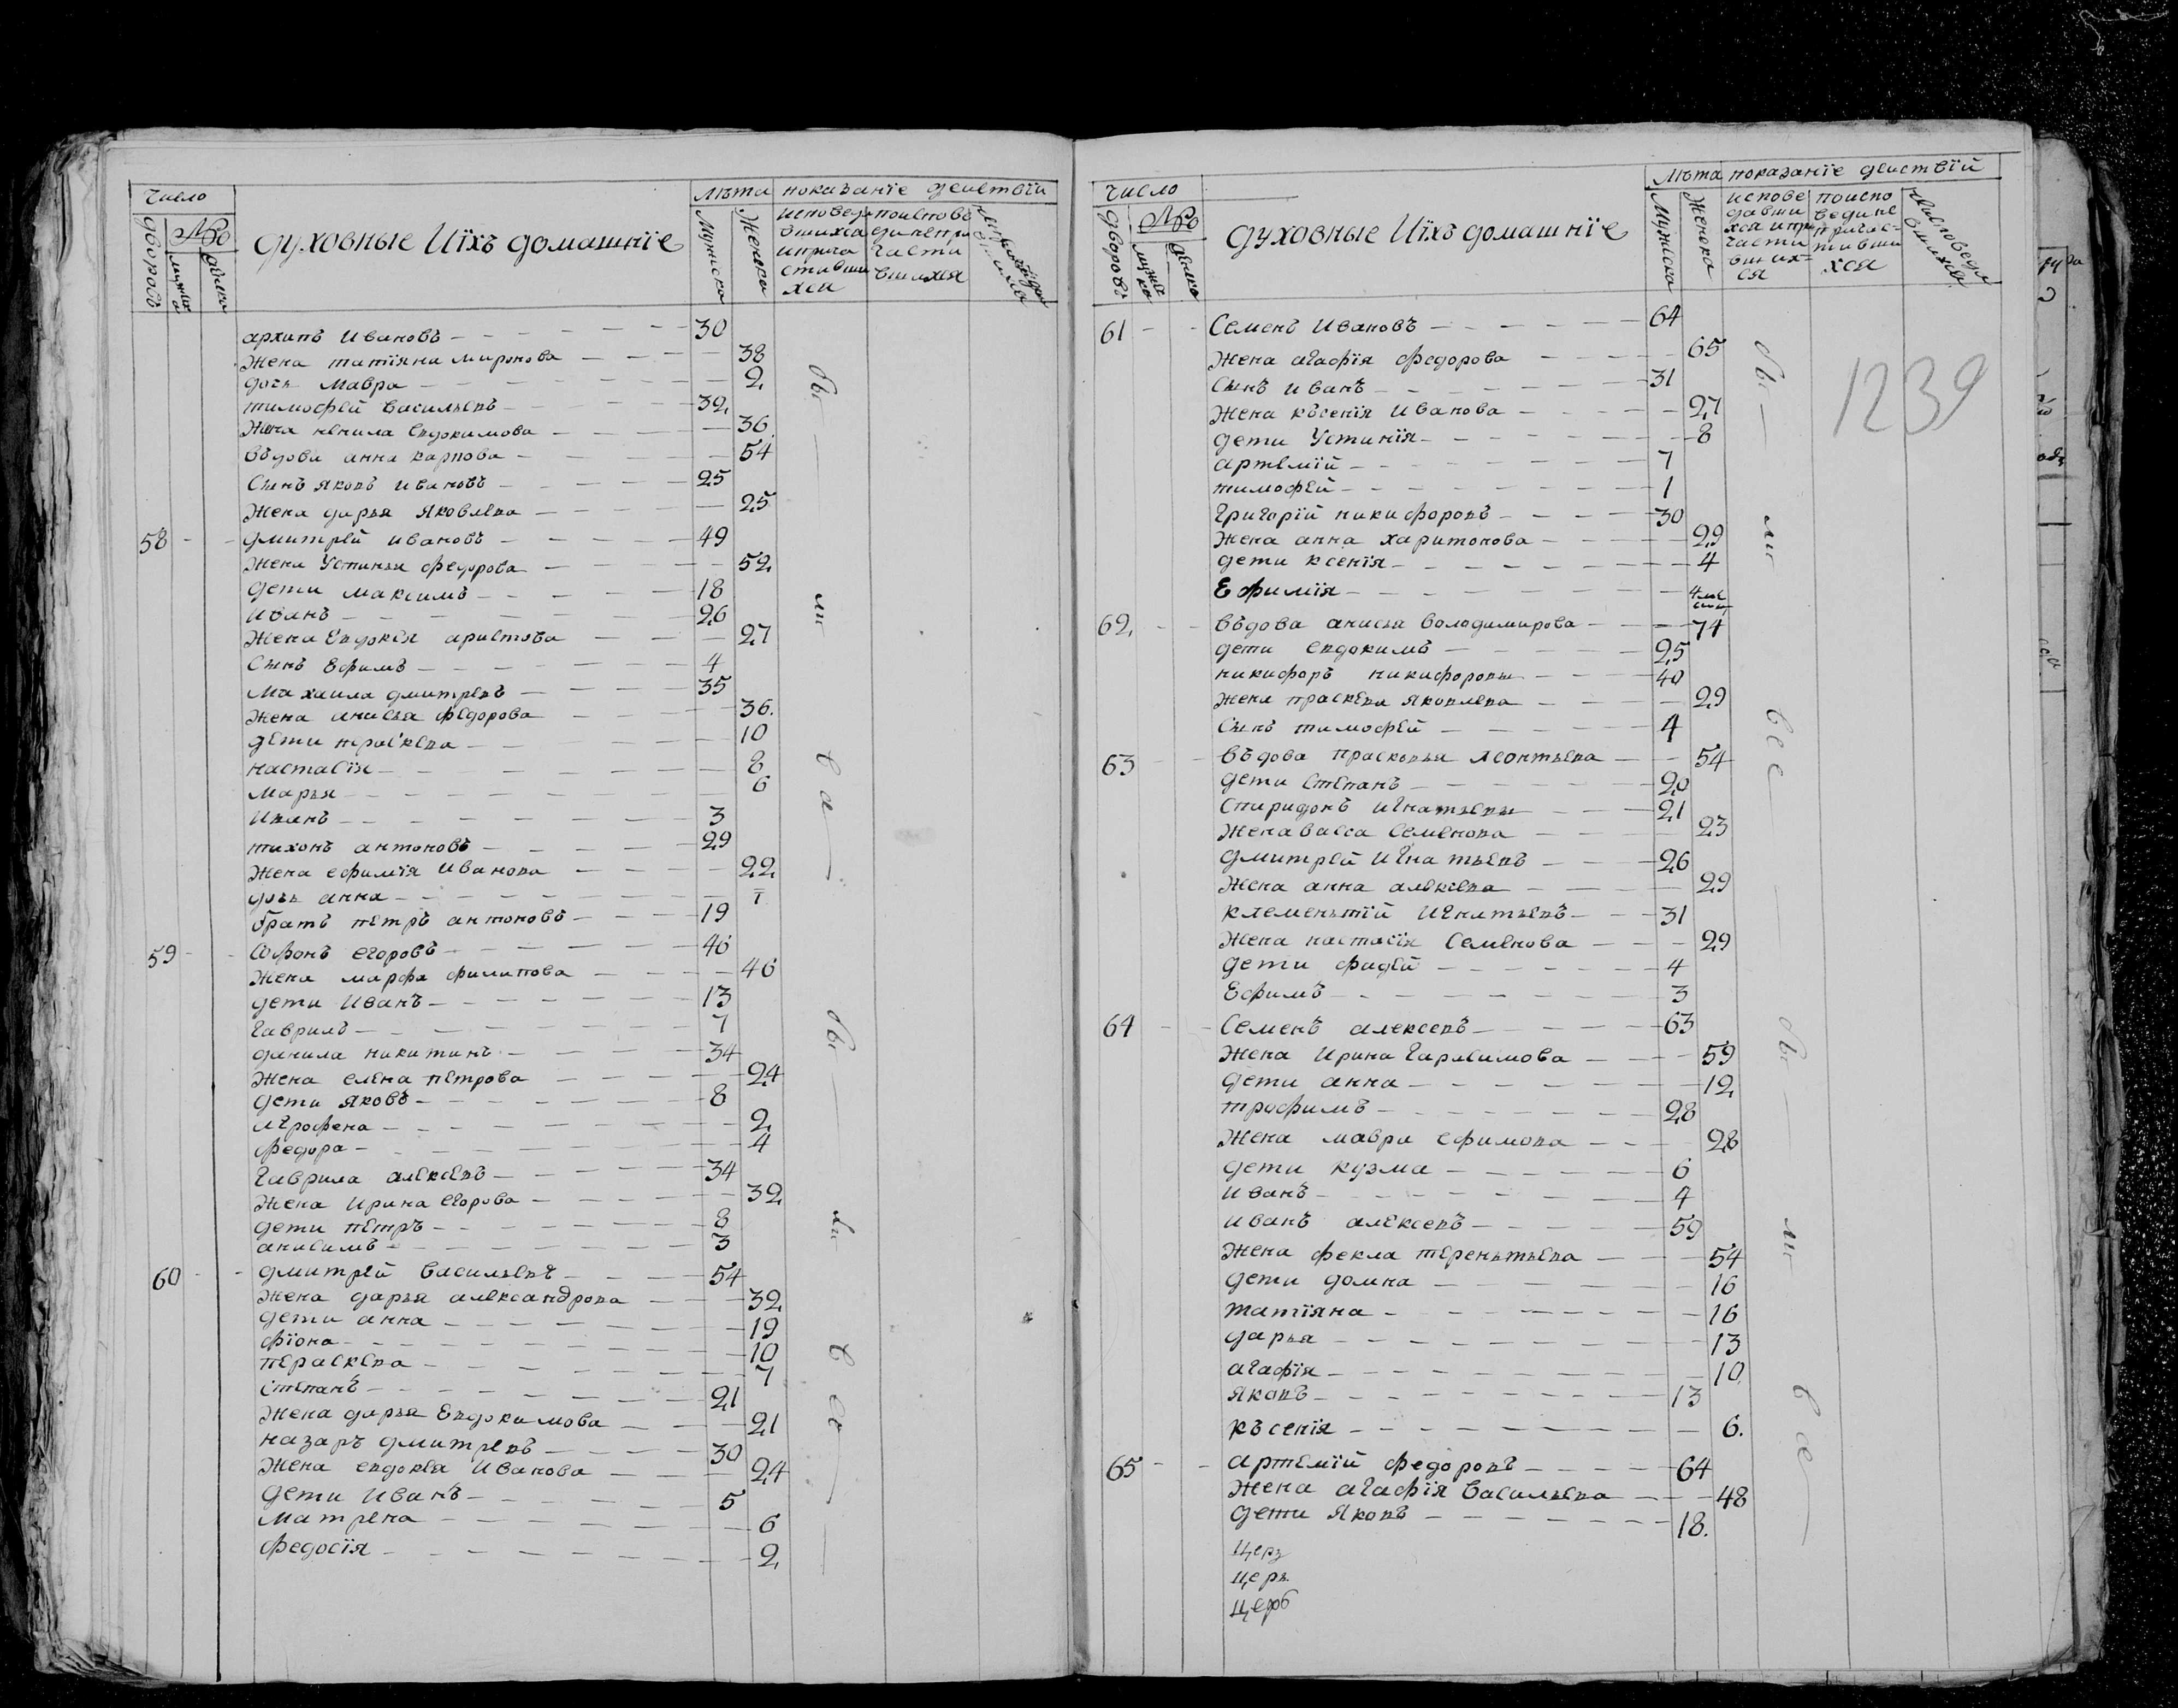 число
№
дворовъ
мужска
духовные Иїхъ домашнїе
Лѣта
Мужска
Женска
показанїе действїи
архипъ Ивановъ 30
Жена татїяна миронова 38
дочь мавра 2
тимофей васильевъ 32
Жена ненила евдокимова 36
въдова анна карпова 54
Сынъ яковъ ивановъ 25
Жена дарья яковлева 25
58 дмитрей ивановъ 49
Жена Устинья федорова 52
дети максимъ 18
иванъ 26
Жена Евдокея аристова 27
Сынъ Ефимъ 4
Михаила дмитревъ 35
Жена анисья федорова 36
дети праскева 10
настасїя 8
марья 6
Иванъ 3
тихонъ антоновъ 29
Жена ефимїя Иванова 22
дочь анна 1
братъ петръ антоновъ 19
59 Софонъ егоровъ 46
Жена марфа филипова 46
дети Иванъ 13
Гаврилъ 7
данила никитинъ 34
Жена елена петрова 24
дети яковъ 8
агрофена 2
федора 4
Гаврила алексевъ 34
Жена Ирина егорова 32
дети петръ 8
анисимъ 3
60 дмитрей васильевъ 54
Жена дарья александрова 32
дети анна 19
фїона 10
пераскева 7
степанъ 21
Жена дарья Евдокимова 21
назаръ дмитревъ 30
Жена евдокея Иванова 24
дети Иванъ 5
матрена 6
федосїя 2
число
№
дворовъ
духовные Иїхъ домашнїе
Лѣта
Мужска
Женска
показанїе действїй
1239
61 Семенъ Ивановъ 64
Жена агафїя федорова 65
Сынъ иванъ 31
Жена късенїя Иванова 27
дети Устинїя 8
артемїй 7
тимофей 1
Григорїй никифоровъ 30
Жена анна харитонова 29
дети ксенїя 4
Ефимїя 4
62 въдова анисья володимирова 74
дети евдокимъ 25
никифоръ никифоровы 40
Жена праскева яковлева 29
Сынъ тимофей 4
63 въдова прасковья леонтьева 54
дети Степанъ 20
Спиридонъ игнатьевы 21
Жена васса Семенова 23
дмитрей Игнатьевъ 26
Жена анна алексева 29
клеменьтїй Игнатьевъ 31
Жена настасїя Семенова 29
дети фадей 4
Ефимъ 3
64 Семенъ алексевъ 63
Жена Ирина Гарасимова 59
дети анна 12
трофимъ 28
Жена мавра ефимова 28
дети кузма 6
Иванъ 4
иванъ алексевъ 59
Жена фекла тереньтьева 54
дети домна 16
татїяна 16
дарья 13
агафїя 10
яковъ 13
късенїя 6.
65 артемїй федоровъ 64
Жена агафїя Васильева 48
дети яковъ 18.